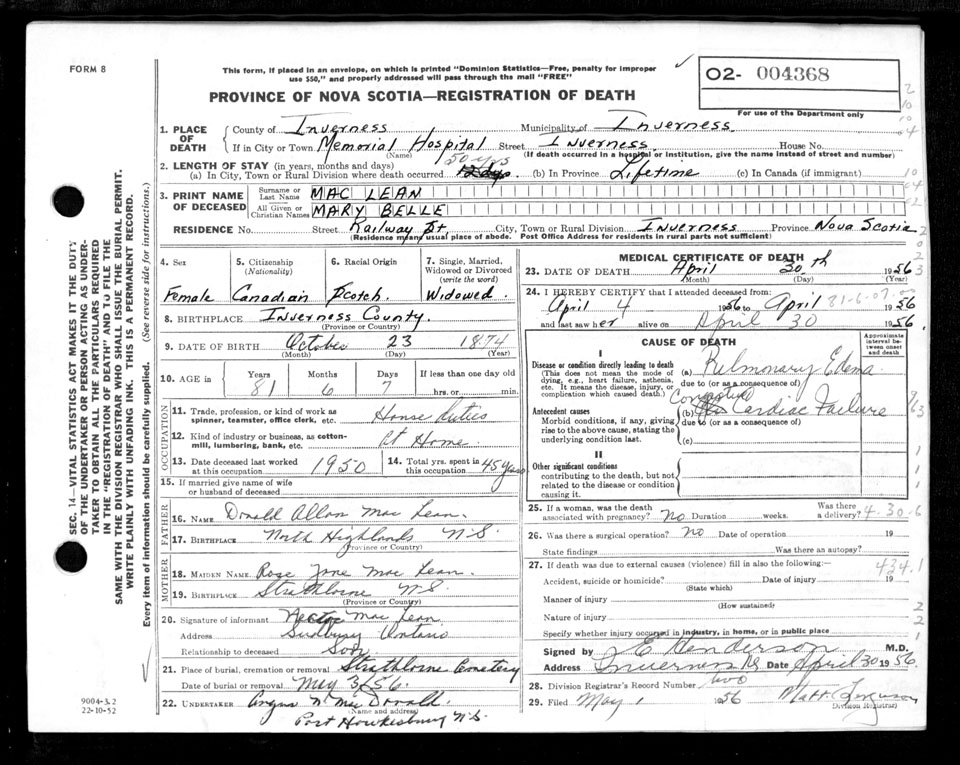 FORM 8
This form, if placed in an envelope, on which is printed "Dominion Statistics—Free, penalty for improper
use $50," and properly addressed will pass through the mail "FREE"
O2- 004368
For use of the Department only
PROVINCE OF NOVA SCOTIA—REGISTRATION OF DEATH
SEC. 14—VITAL STATISTICS ACT MAKES IT THE DUTY
OF THE UNDERTAKER OR PERSON ACTING AS UNDER-
TAKER TO OBTAIN ALL THE PARTICULARS REQUIRED
IN THE "REGISTRATION OF DEATH" AND TO FILE THE
SAME WITH THE DIVISION REGISTRAR WHO SHALL ISSUE THE BURIAL PERMIT.
WRITE PLAINLY WITH UNFADING INK. THIS IS A PERMANENT RECORD.
Every item of information should be carefully supplied. (See reverse side for instructions.)
1. PLACE OF DEATH
County of Inverness Municipality of Inverness
If in City or Town Memorial Hospital Street Inverness House No.
(Name) (If death occurred in a hospital or institution, give the name instead of street and number)
2. LENGTH OF STAY (in years, months and days)
(a) In City, Town or Rural Division where death occurred 50 yrs (b) In Province Lifetime (c) In Canada (if immigrant)
3. PRINT NAME OF DECEASED
Surname or Last Name MAC LEAN
All Given or Christian Names MARY BELLE
RESIDENCE No. Street Railway St. City, Town or Rural Division Inverness Province Nova Scotia
(Residence means usual place of abode. Post Office Address for residents in rural parts not sufficient)
4. Sex 5. Citizenship (Nationality) 6. Racial Origin 7. Single, Married, Widowed or Divorced (write the word)
Female Canadian Scotch Widowed
8. BIRTHPLACE Inverness County.
(Province or Country)
9. DATE OF BIRTH October 23 1874
(Month) (Day) (Year)
10. AGE in Years Months Days If less than one day old
81 6 7 hrs. or min.
OCCUPATION
11. Trade, profession, or kind of work as
spinner, teamster, office clerk, etc. House Duties
12. Kind of industry or business, as cotton-
mill, lumbering, bank, etc. At Home.
13. Date deceased last worked at this occupation 1950
14. Total yrs. spent in this occupation 45 years
15. If married give name of wife
or husband of deceased
FATHER
16. NAME Donald Allan Mac Lean.
17. BIRTHPLACE North Highlands N.S.
(Province or Country)
MOTHER
18. MAIDEN NAME Rose Jane Mac Lean.
19. BIRTHPLACE Strathlorne N.S.
(Province or Country)
20. Signature of informant Hector Mac Lean
Address Sudbury Ontario
Relationship to deceased Son
21. Place of burial, cremation or removal Strathlorne Cemetery
Date of burial or removal May 3/56.
22. UNDERTAKER Angus N Mac Donald.
(Name and address)
Port Hawkesbury N.S.
9004-3.2
22-10-52
MEDICAL CERTIFICATE OF DEATH
23. DATE OF DEATH April 30th 1956
(Month) (Day)
24. I HEREBY CERTIFY that I attended deceased from:
April 4 1956 to April 1956
and last saw her alive on April 30 1956.
CAUSE OF DEATH
Approximate interval between onset and death
I
Disease or condition directly leading to death
(This does not mean the mode of
dying, e.g., heart failure, asthenia,
etc. It means the disease, injury, or
complication which caused death.)
(a) Pulmonary Edema
due to (or as a consequence of)
Congestive
(b) Cardiac Failure
due to (or as a consequence of)
(c)
Antecedent causes
Morbid conditions, if any, giving
rise to the above cause, stating the
underlying condition last.
II
Other significant conditions
contributing to the death, but not
related to the disease or condition
causing it.
25. If a woman, was the death
associated with pregnancy? No Duration weeks. Was there a delivery?
4-30-6
26. Was there a surgical operation? No Date of operation 19
State findings Was there an autopsy?
27. If death was due to external causes (violence) fill in also the following:—
434.1
Accident, suicide or homicide? Date of injury 19
(State which)
Manner of injury
(How sustained)
Nature of injury
Specify whether injury occurred in industry, in home, or in public place
Signed by J E Henderson M.D.
Address Inverness NS Date April 30 1956.
28. Division Registrar's Record Number
29. Filed May 1 1956 Matt. Ferguson
(Division Registrar)